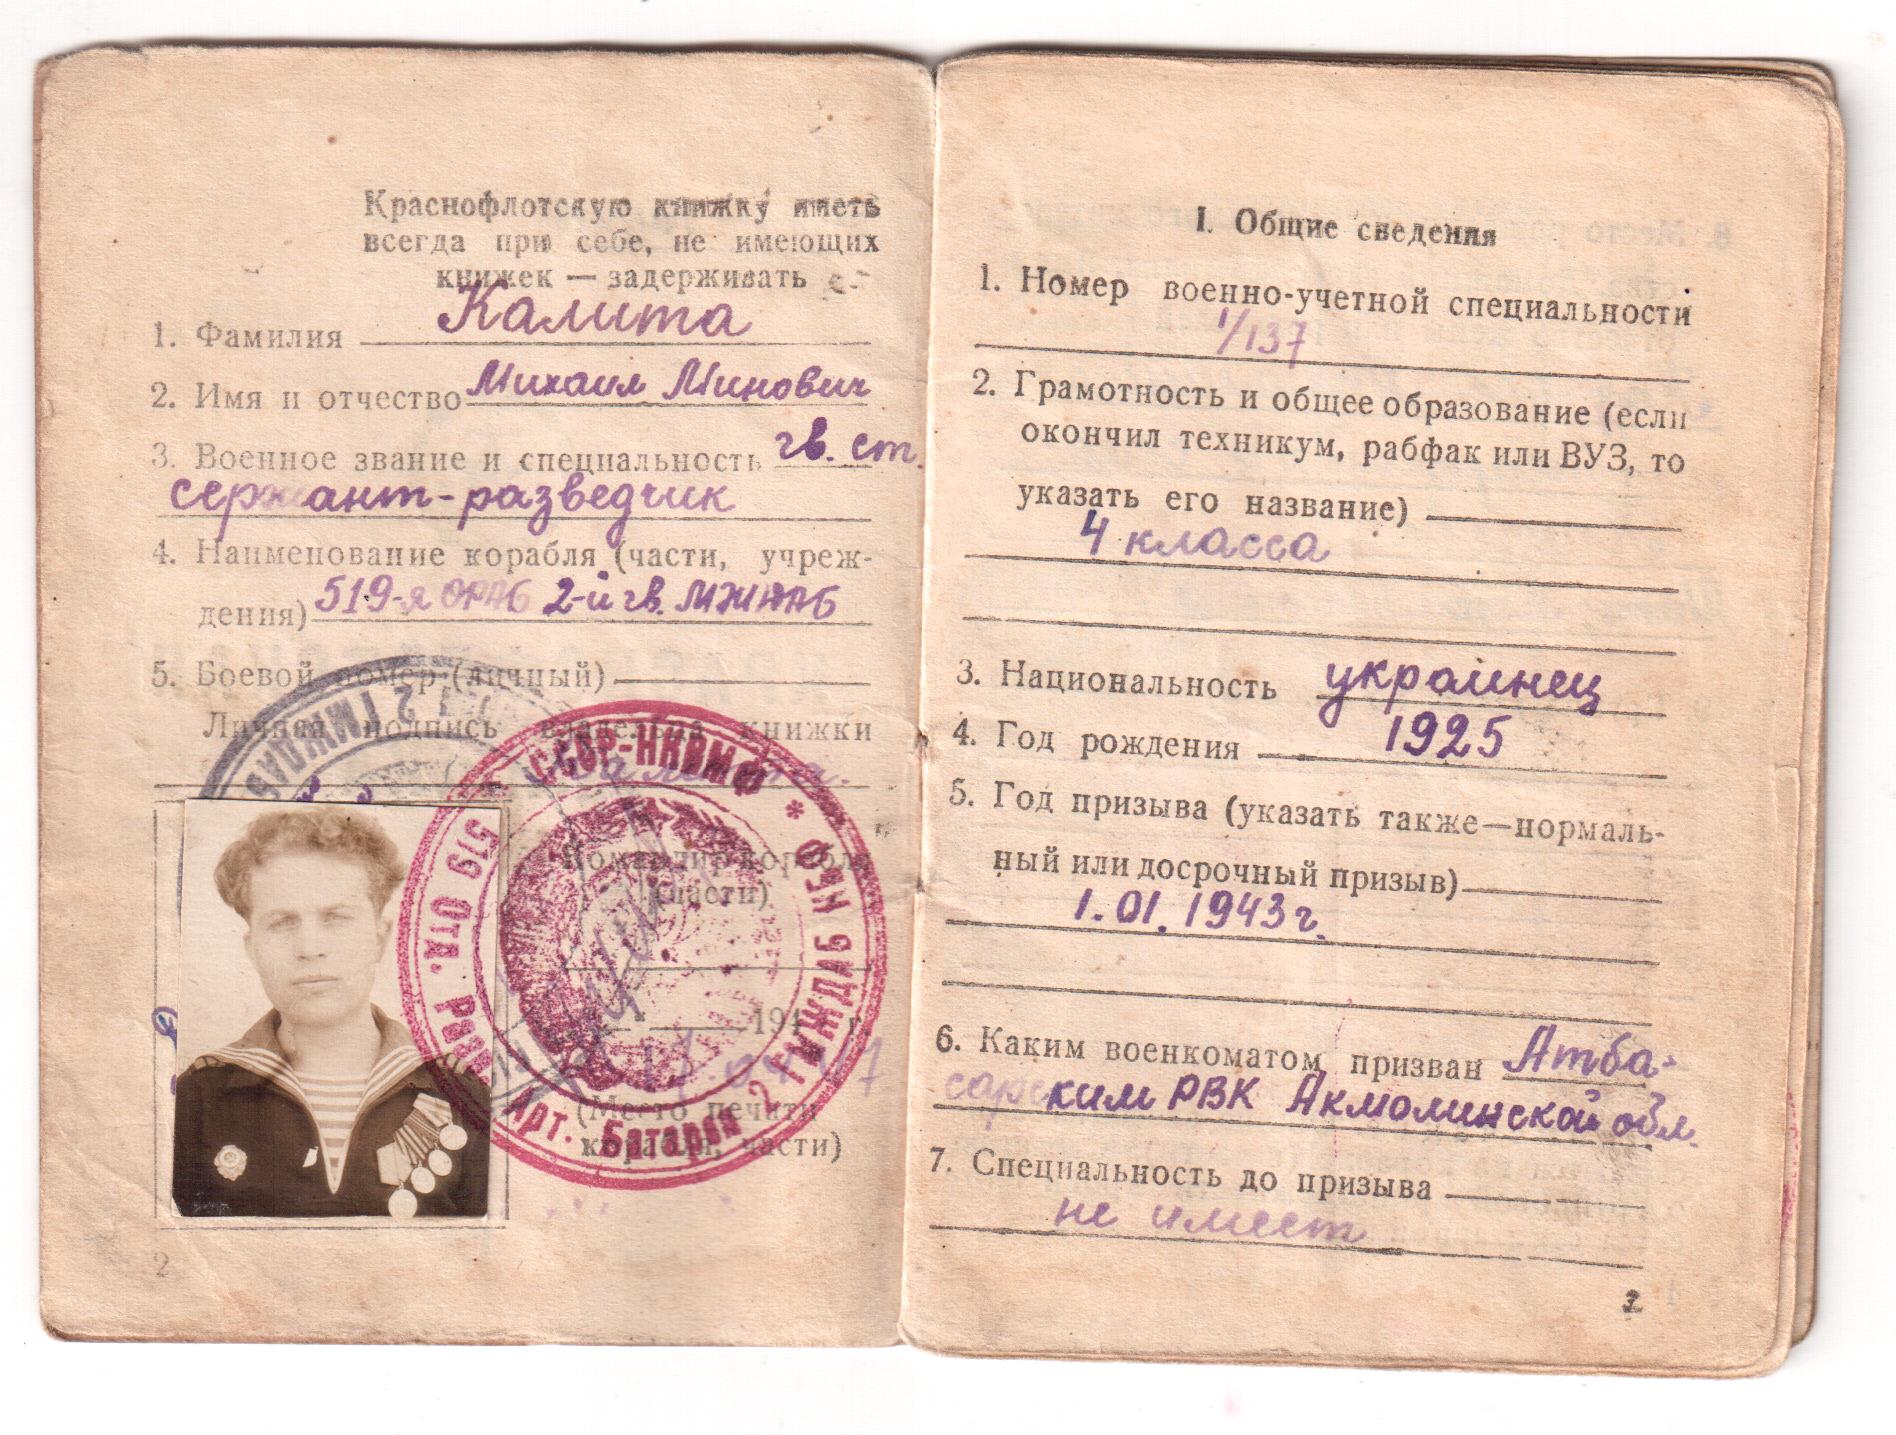 Краснофлотскую книжку иметь
всегда при себе, не имеющих
книжек — задерживать
1. Фамилия Калита
2. Имя и отчество Михаил Минович
3. Военное звание и специальность гв. ст.
сержант-разведчик
4. Наименование корабля (части, учреж-
дения) 519-я ОРАБ 2-й гв. МЖДАБ
5. Боевой номер (личный)
Личная подпись владельца книжки
Командир корабля
(части)
194 г.
(Место печати
корабля, части)
СССР-НКВМФ * 519 Отд. Арт. Батарея 2 ГМЖДАБ ЧФО
2 ГМЖДАБ
2
I. Общие сведения
1. Номер военно-учетной специальности
1/137
2. Грамотность и общее образование (если
окончил техникум, рабфак или ВУЗ, то
указать его название)
4 класса
3. Национальность украинец
4. Год рождения 1925
5. Год призыва (указать также—нормаль-
ный или досрочный призыв)
1.01.1943г.
6. Каким военкоматом призван Атба-
сарским РВК Акмолинской обл.
7. Специальность до призыва
не имеет
3